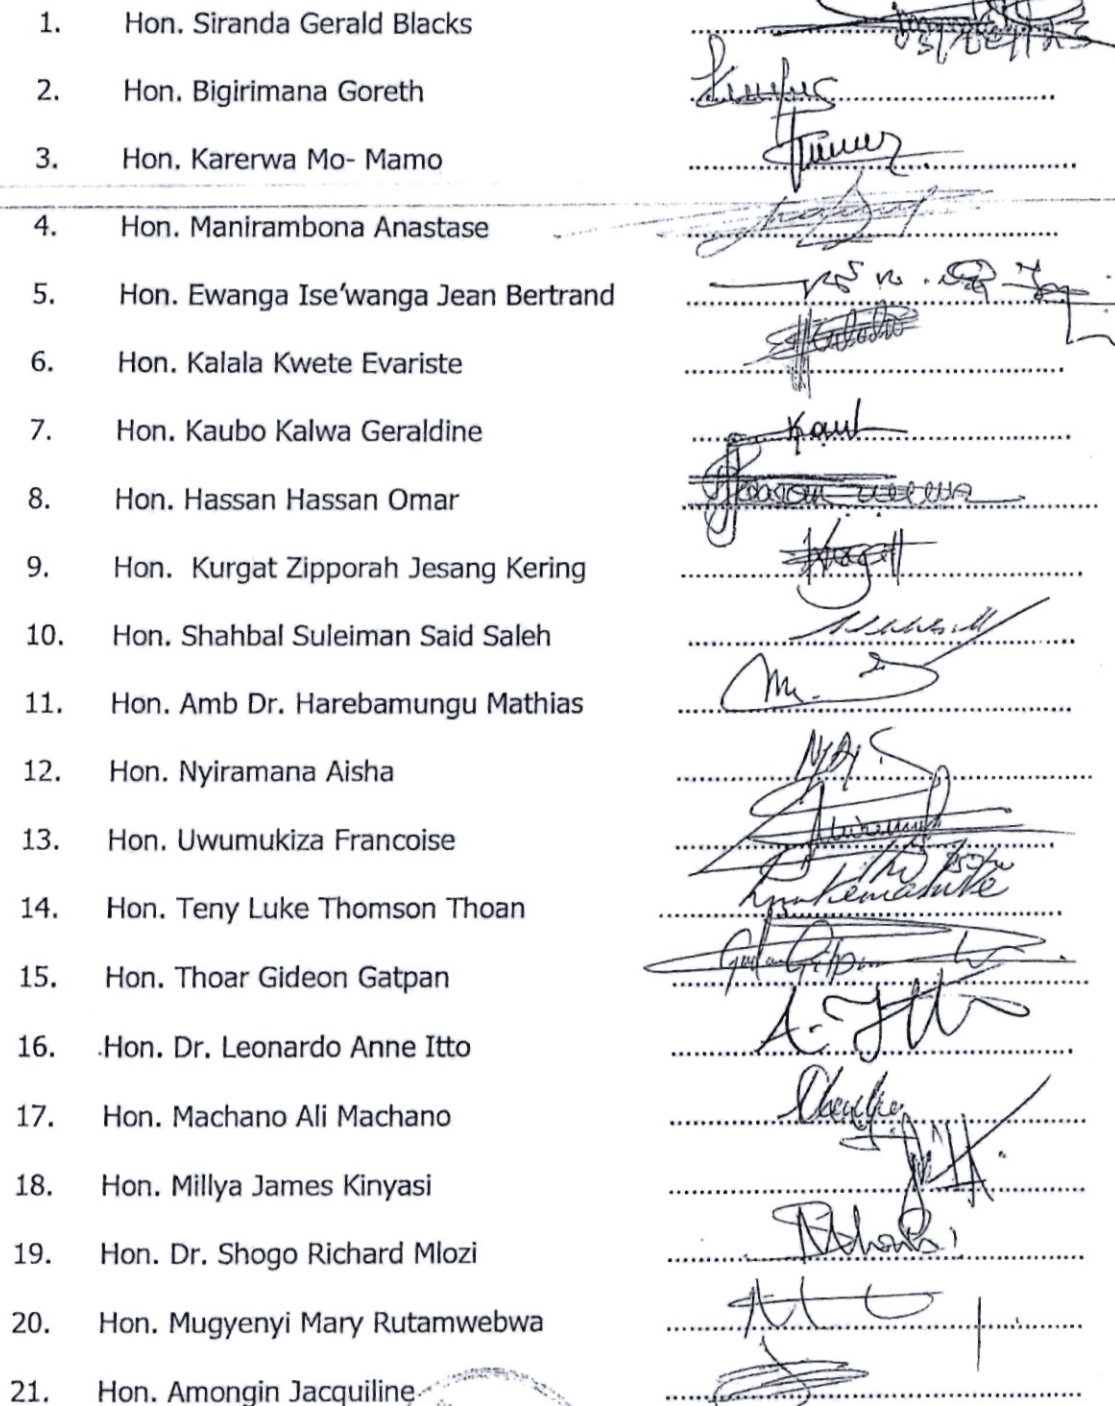 1. Hon. Siranda Gerald Blacks
2. Hon. Bigirimana Goreth
3. Hon. Karerwa Mo- Mamo
4. Hon. Manirambona Anastase
5. Hon. Ewanga Ise'wanga Jean Bertrand
6. Hon. Kalala Kwete Evariste
7. Hon. Kaubo Kalwa Geraldine
8. Hon. Hassan Hassan Omar
9. Hon. Kurgat Zipporah Jesang Kering
10. Hon. Shahbal Suleiman Said Saleh
11. Hon. Amb Dr. Harebamungu Mathias
12. Hon. Nyiramana Aisha
13. Hon. Uwumukiza Francoise
14. Hon. Teny Luke Thomson Thoan
15. Hon. Thoar Gideon Gatpan
16. Hon. Dr. Leonardo Anne Itto A. Itto
17. Hon. Machano Ali Machano
18. Hon. Millya James Kinyasi
19. Hon. Dr. Shogo Richard Mlozi
20. Hon. Mugyenyi Mary Rutamwebwa
21. Hon. Amongin Jacquiline